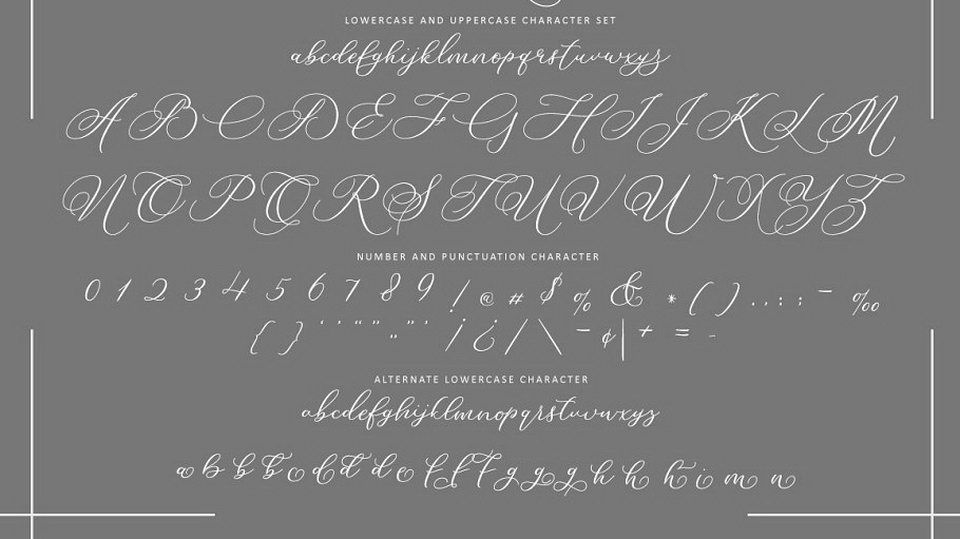 LOWERCASE AND UPPERCASE CHARACTER SET
abcdefghijklmnopqrstuvwxyz
A B C D E F G H I J K L M
N O P Q R S T U V W X Y Z
NUMBER AND PUNCTUATION CHARACTER
0 1 2 3 4 5 6 7 8 9 ! @ # $ % & * ( ) . , : ; – ‰
{ } ‘ ’ “ ” „ " ' ¡ ¿ / \ – ¢ | + = -
ALTERNATE LOWERCASE CHARACTER
abcdefghijklmnopqrstuvwxyz
a b b b c d d d e f f f g g g h h h i m n